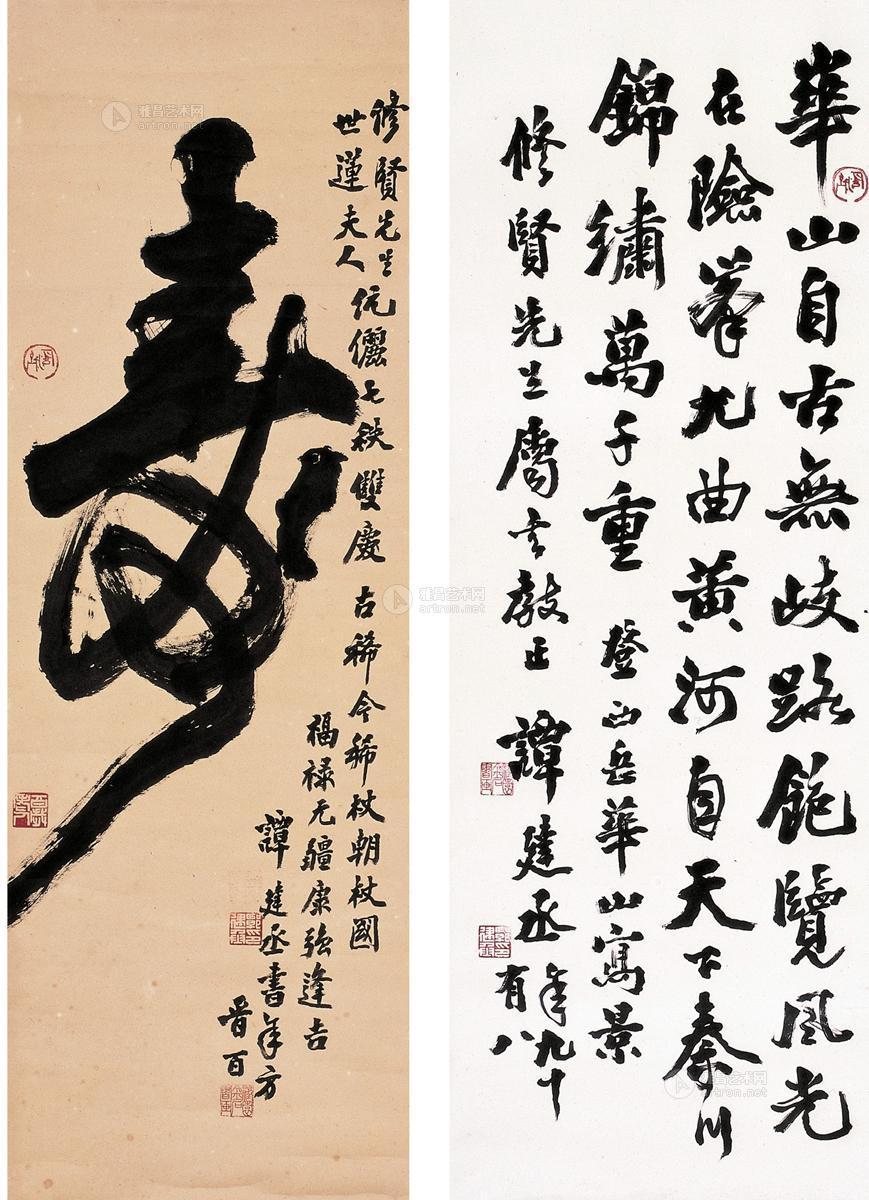 華山自古無岐路飽覽風光
在險峯九曲黃河自天下秦川
錦繡萬千重 登山岳華山寫景
修賢先生屬書教正 譚建丞年九十
有八
修賢先生伉儷七秩雙慶 古稀今稀杖朝杖國
世蓮夫人
福祿无疆康強逢吉
譚建丞書年方
晉百
壽
雅昌艺术网
artron.net